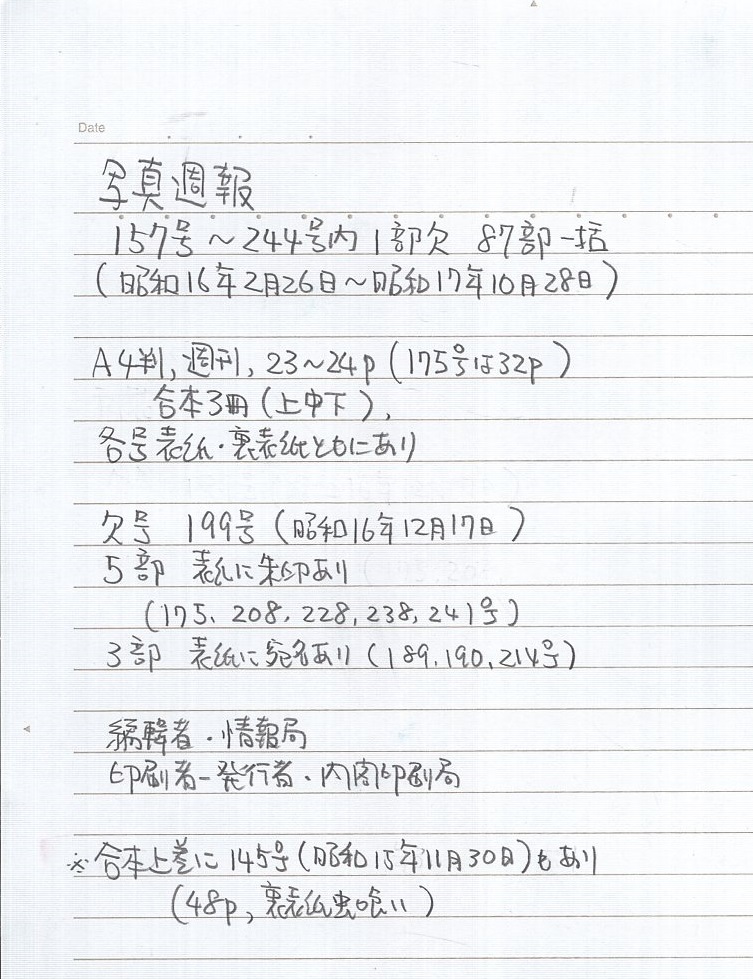 Date
写真週報
157号～244号内1部欠 87部一括
(昭和16年2月26日～昭和17年10月28日)
A4判, 週刊, 23～24p (175号は32p)
合本3冊(上中下),
各号表紙・裏表紙ともにあり
欠号 199号(昭和16年12月17日)
5部 表紙に朱印あり
(175, 208, 228, 238, 241号)
3部 表紙に宛名あり(189, 190, 214号)
編輯者・情報局
印刷者－発行者・内閣印刷局
※合本上巻に145号(昭和15年11月30日)もあり
(48p, 裏表紙虫喰い)